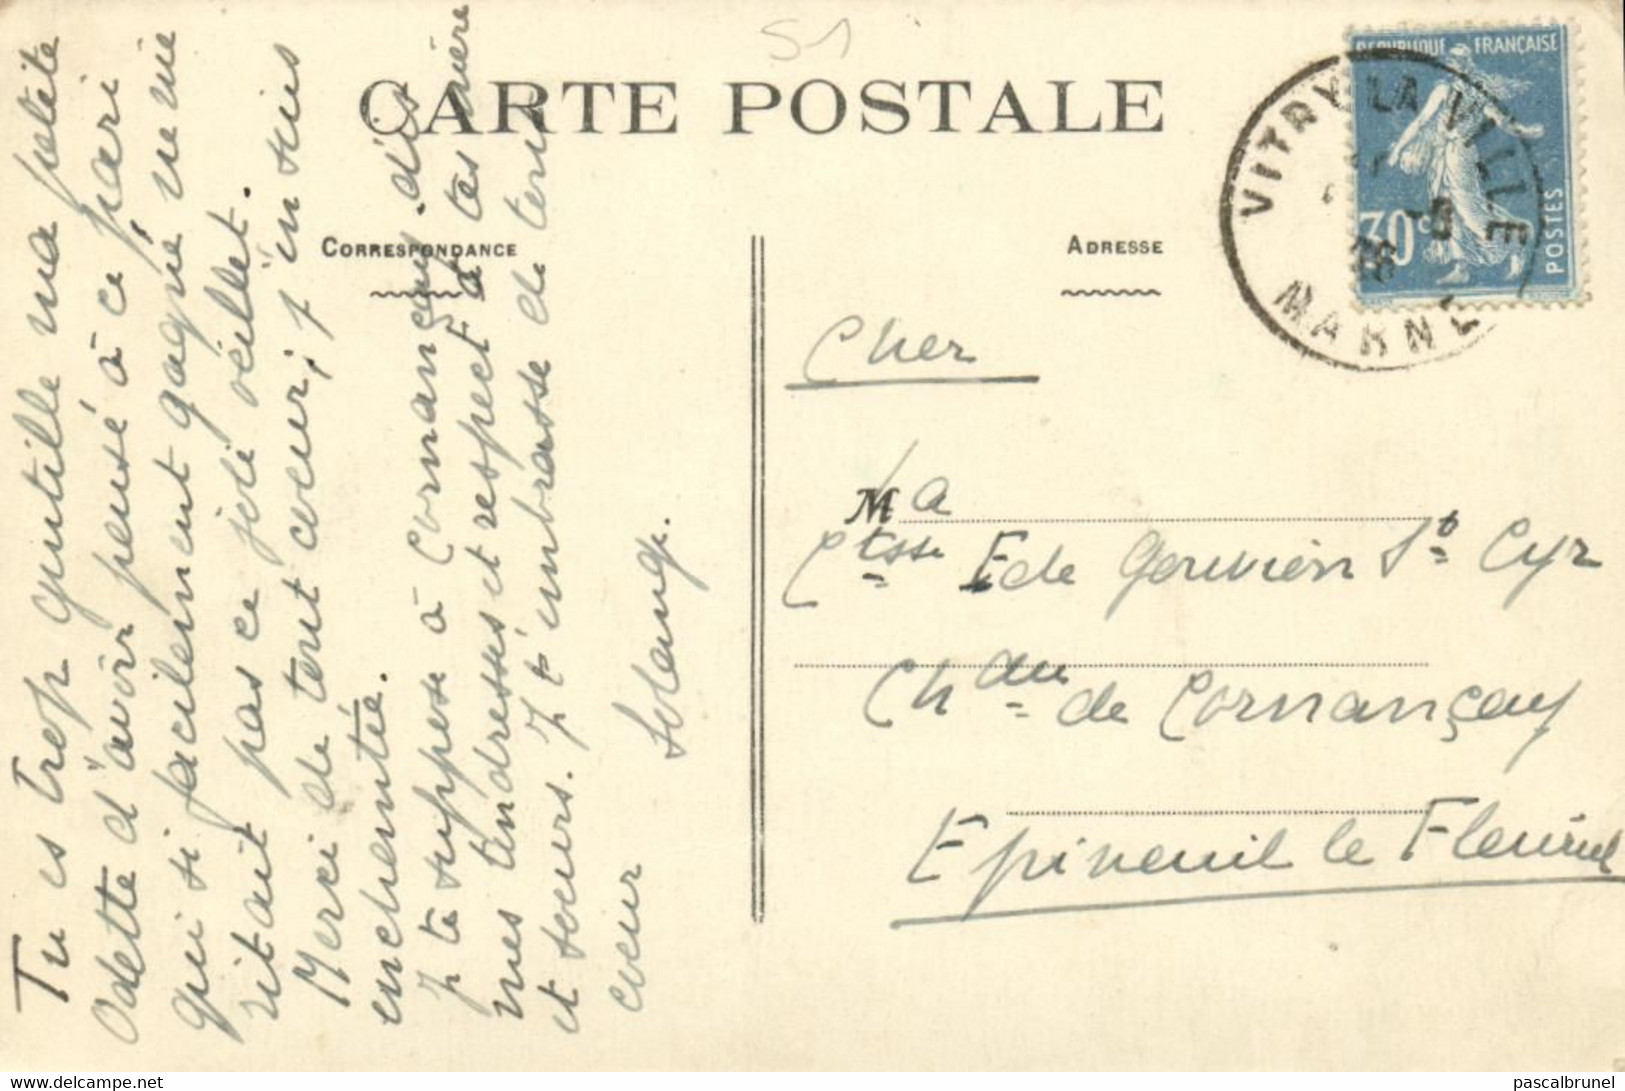 51
CARTE POSTALE
CORRESPONDANCE
ADRESSE
REPUBLIQUE FRANÇAISE
30c
POSTES
VITRY LA VILLE
MARNE
Tu es trop gentille ma petite
Odette d'avoir pensé à ce pari
qui si facilement gagné ne mé
ritait pas ce joli œillet.
Merci de tout cœur, j'en suis
enchentée.
J te suppose à Cornançay. dis
mes tendresses et respect à tes mère
et sœurs. J t'embrasse de tout
cœur
Solange.
Cher
Ma
Ctsse E de Gouvion St Cyr
Chau de Cornançay
Epineuil le Fleuriel
delcampe.net
pascalbrunel